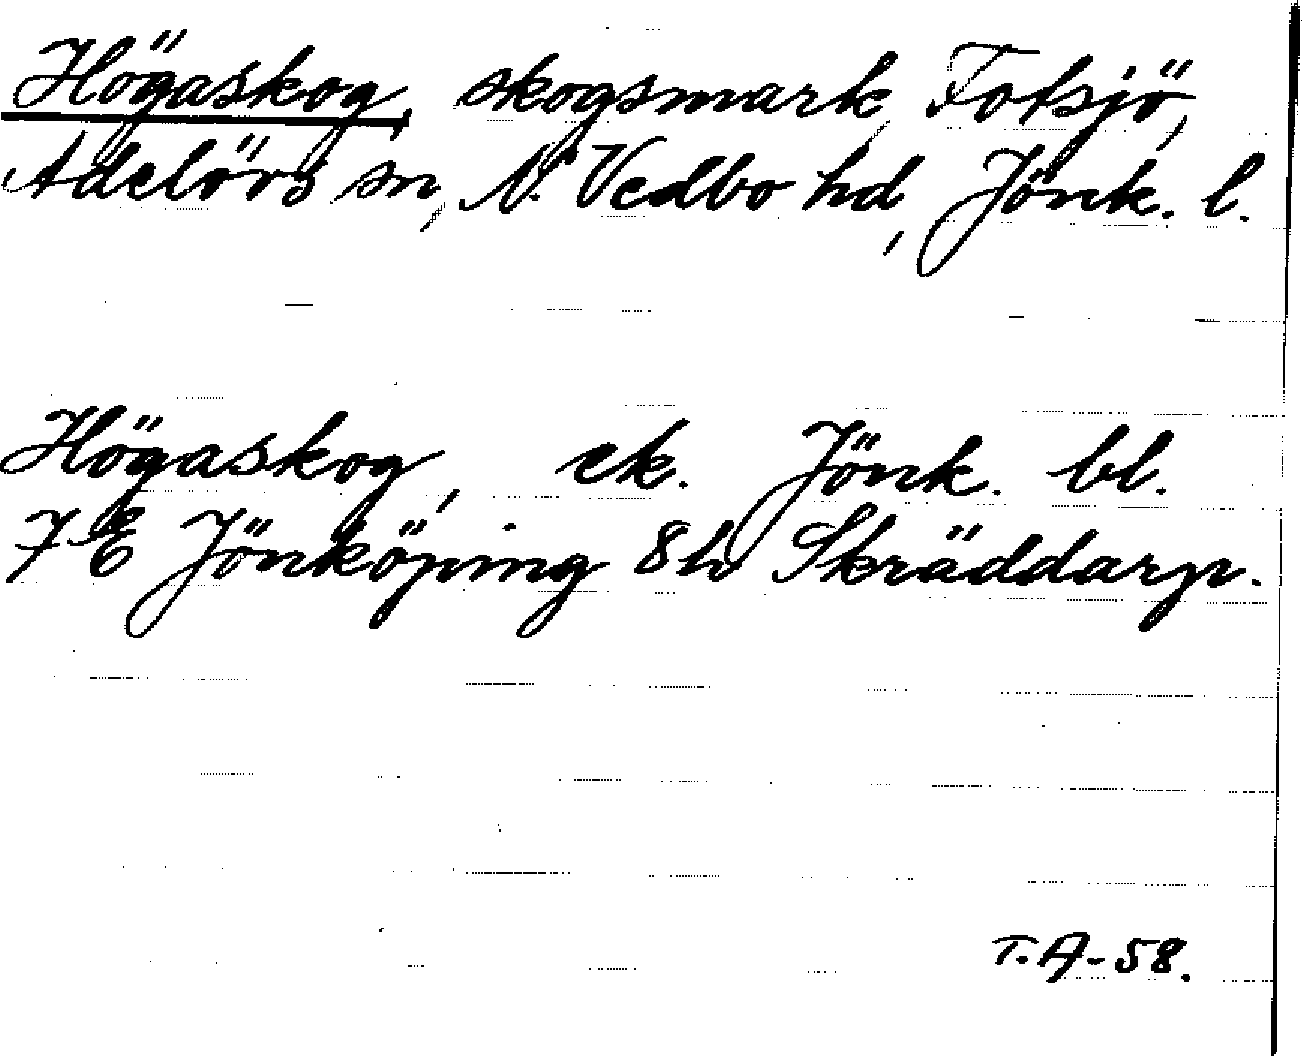 Högaskog, skogsmark, Fotsjö,
Adelövs sn, N. Vedbo hd, Jönk. l.
Högaskog, ek. Jönk. bl.
7 E Jönköping 8 h Skräddarp.
T.A-58.